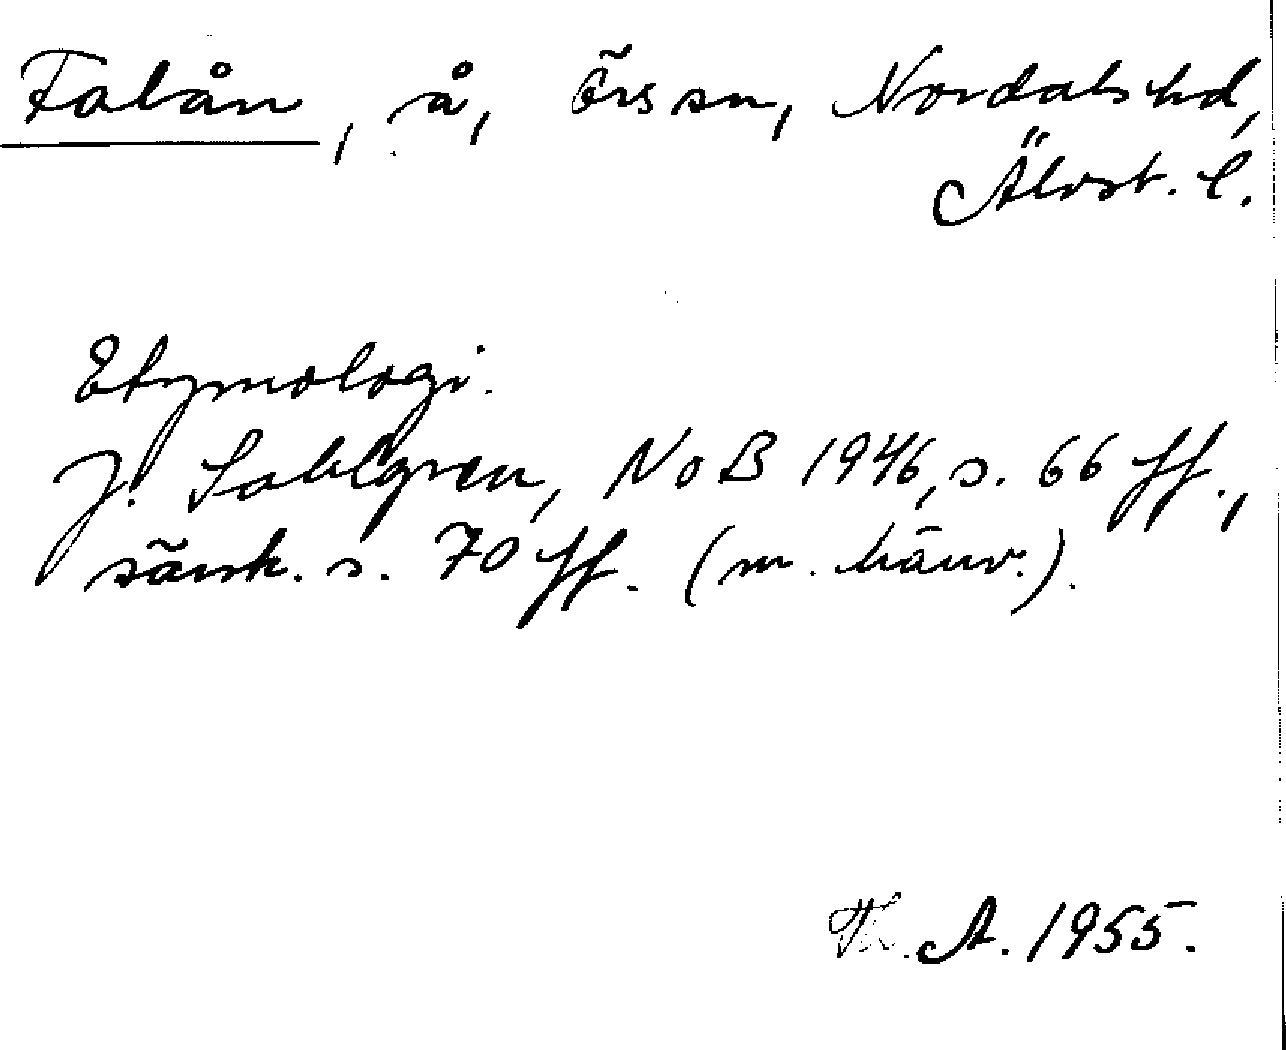 Falån, å, Örs sn, Nordals hd,
Älvsb. l.
Etymologi.
J. Sahlgren, NoB 1946, s. 66 ff.,
särsk. s. 70 ff. (m. hänv.).
Th. A. 1955.